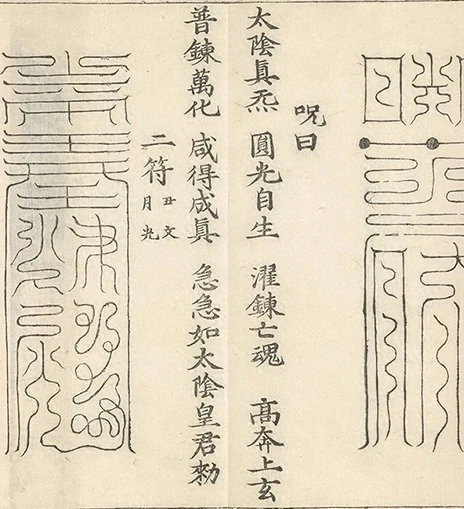 呪曰
太陰眞炁 圓光自生 濯鍊亡魂 高奔上玄
普鍊萬化 咸得成眞 急急如太陰皇君勑
二符 丑文
月光